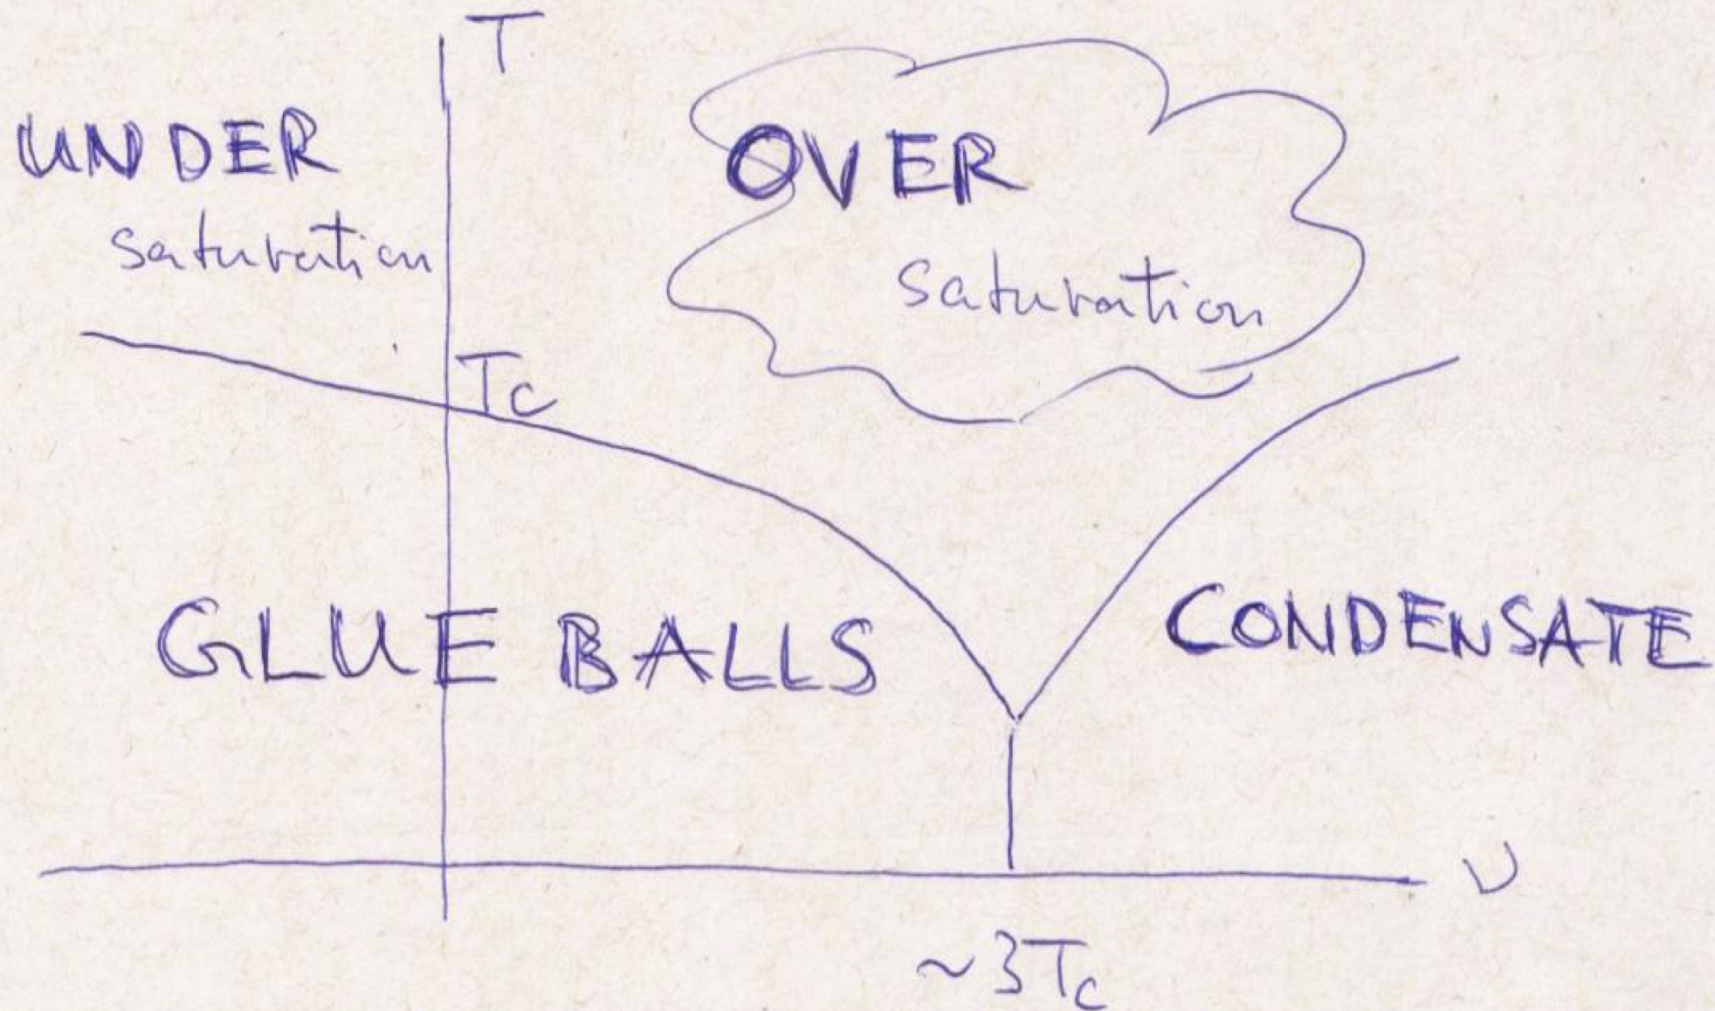 T
UNDER
saturation
OVER
saturation
Tc
GLUE BALLS
CONDENSATE
ν
~3Tc